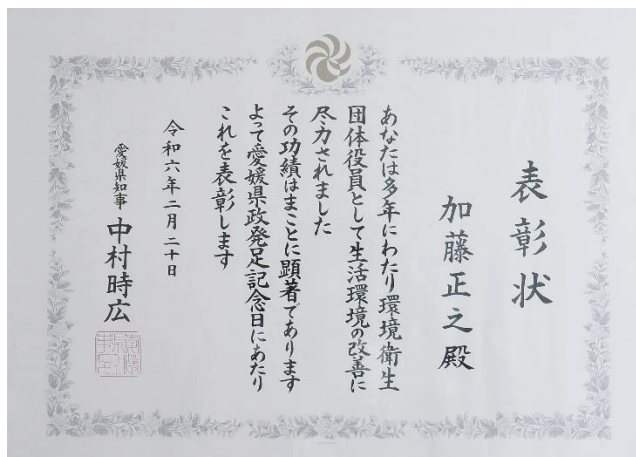 表彰状
加藤正之殿
あなたは多年にわたり環境衛生
団体役員として生活環境の改善に
尽力されました
その功績はまことに顕著であります
よって愛媛県政発足記念日にあたり
これを表彰します
令和六年二月二十日
愛媛県知事 中村時広